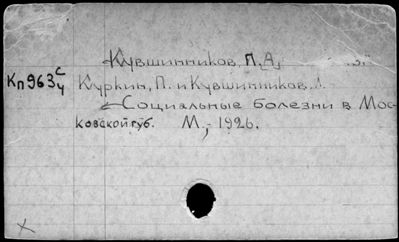 Кувшинников, П.[А.]
Кп963 С/ч Куркин, П. и Кувшинников,
Социальные болезни в Мос-
ковской губ. М., 1926.